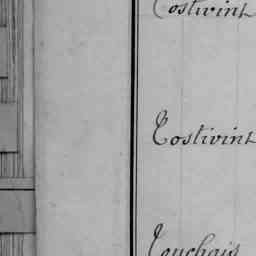 Tostivint
Tostivint
Touchais